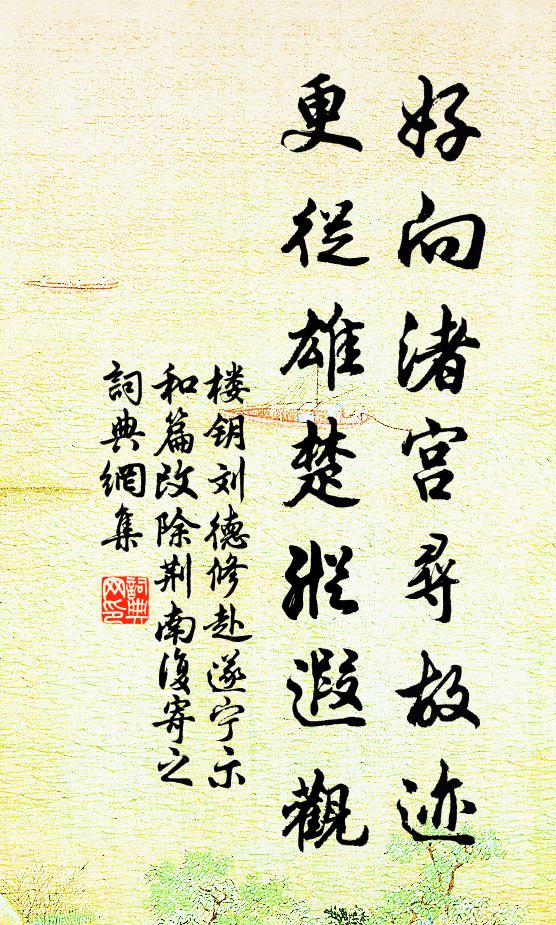 好向渚宫尋故迹
更從雄楚縱遐觀
楼钥刘德修赴遂宁示
和篇改除荆南復寄之
詞典網集
詞典网印